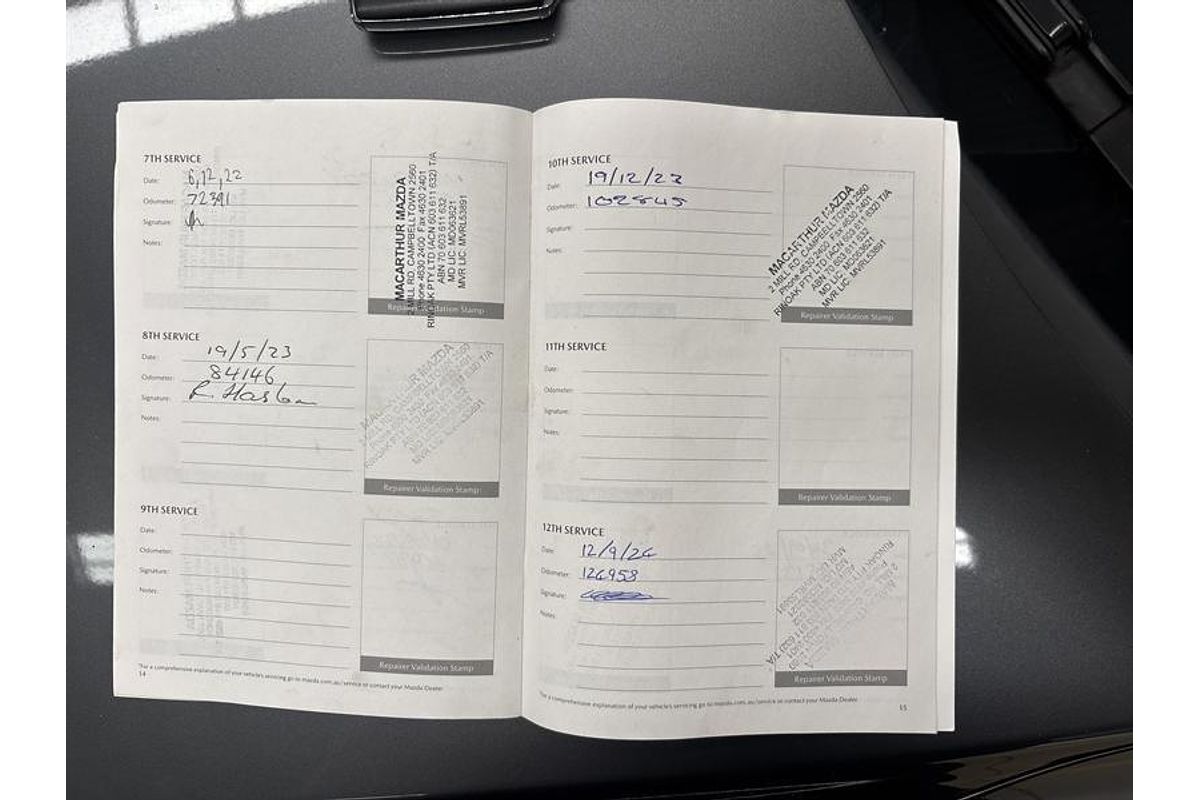 7TH SERVICE
Date: 6,12,22
Odometer: 72391
Signature:
Notes:
MACARTHUR MAZDA
2 MILL RD, CAMPBELLTOWN 2560
Phone 4630 2400 Fax 4630 2401
RINOAK PTY LTD (ACN 603 611 632) T/A
ABN 70 603 611 632
MD LIC: MD063621
MVR LIC: MVRL53891
Repairer Validation Stamp
8TH SERVICE
Date: 19/5/23
Odometer: 84146
Signature: R.
Notes:
MACARTHUR MAZDA
2 MILL RD, CAMPBELLTOWN 2560
Repairer Validation Stamp
9TH SERVICE
Date:
Odometer:
Signature:
Notes:
Repairer Validation Stamp
*For a comprehensive explanation of your vehicle's servicing go to mazda.com.au/service or contact your Mazda Dealer
14
10TH SERVICE
Date: 19/12/23
Odometer: 102845
Signature:
Notes:
MACARTHUR MAZDA
2 MILL RD, CAMPBELLTOWN 2560
Phone 4630 2400 Fax 4630 2401
RINOAK PTY LTD (ACN 603 611 632) T/A
ABN 70 603 611 632
MD LIC: MD063621
MVR LIC: MVRL53891
Repairer Validation Stamp
11TH SERVICE
Date:
Odometer:
Signature:
Notes:
Repairer Validation Stamp
12TH SERVICE
Date: 12/9/24
Odometer: 124958
Signature:
Notes:
Repairer Validation Stamp
*For a comprehensive explanation of your vehicle's servicing go to mazda.com.au/service or contact your Mazda Dealer
15